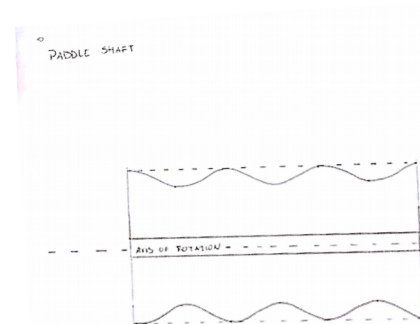 PADDLE SHAFT
AXIS OF ROTATION